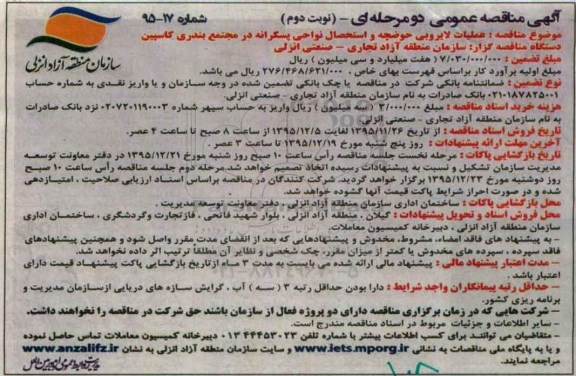 آگهی مناقصه عمومی دو مرحله ای - (نوبت دوم) شماره ۱۷-۹۵
موضوع مناقصه : عملیات لایروبی حوضچه و استحصال نواحی پسکرانه در مجتمع بندری کاسپین
دستگاه مناقصه گزار: سازمان منطقه آزاد تجاری – صنعتی انزلی
تضمین : ۷/۰۳۰/۰۰۰/۰۰۰ ( هفت میلیارد و سی میلیون ) ریال
مبلغ اولیه برآورد کار براساس فهرست بهای خاص . ۲۷۶/۴۶۸/۶۲۱/۰۰۰ ریال می باشد.
نوع تضمین : ضمانتنامه بانکی شرکت در مناقصه یا چک بانکی تضمین شده در وجه سازمان و یا واریز نقدی به شماره حساب
۰۲۱۰۱۸۷۸۲۵۰۰۱ بانک صادرات به نام سازمان منطقه آزاد تجاری - صنعتی انزلی.
هزینه خرید اسناد مناقصه : مبلغ ۳/۰۰۰/۰۰۰ (سه میلیون ) ریال واریز به حساب سپهر شماره ۰۲۰۷۲۰۱۱۹۰۰۰۳ نزد بانک صادرات
به نام سازمان منطقه آزاد تجاری - صنعتی انزلی.
تاریخ فروش اسناد مناقصه : از تاریخ ۱۳۹۵/۱۱/۲۶ لغایت ۱۳۹۵/۱۲/۵ از ساعت ۸ صبح تا ساعت ۴ عصر.
آخرین مهلت ارائه پیشنهادات : روز پنج شنبه مورخ ۱۳۹۵/۱۲/۱۹ تا ساعت ۳ عصر .
تاریخ بازگشایی پاکات : مرحله نخست جلسه مناقصه رأس ساعت ۱۰ صبح روز شنبه مورخ ۱۳۹۵/۱۲/۲۱ در دفتر معاونت توسعه
مدیریت سازمان تشکیل و نسبت به پیشنهادات رسیده اتخاذ تصمیم خواهد شد.مرحله دوم جلسه مناقصه رأس ساعت ۱۰ صبح
روز دوشنبه مورخ ۱۳۹۵/۱۲/۲۳ برگزار خواهد گردید. شرکت کنندگان در مناقصه براساس اسناد ارزیابی صلاحیت ، امتیازدهی
شده و در صورت احراز شرایط پاکت قیمت آنها گشوده خواهد شد.
محل بازگشایی پاکات : ساختمان اداری سازمان منطقه آزاد انزلی ، دفتر معاونت توسعه مدیریت .
محل فروش اسناد و تحویل پیشنهادات : گیلان ، منطقه آزاد انزلی ، بلوار شهید فاتحی ، فاز تجارت و گردشگری ، ساختمان اداری
سازمان منطقه آزاد انزلی ، دبیرخانه کمیسیون معاملات.
- به پیشنهاد های فاقد امضاء، مشروط، مخدوش و پیشنهادهایی که بعد از انقضای مدت مقرر واصل شود و همچنین پیشنهادهای
فاقد سپرده ، سپرده های مخدوش یا کمتر از میزان مقرر، چک شخصی و نظایر آن مطلقاً ترتیب اثر داده نخواهد شد.
- مدت اعتبار پیشنهاد مالی : پیشنهاد مالی ارائه شده می بایست به مدت ۳ ماه ازتاریخ بازگشایی پاکت پیشنهاد قیمت دارای
اعتبار باشد .
- حداقل رتبه پیمانکاران واجد شرایط : دارا بودن حداقل رتبه ۳ ( سه ) آب ، گرایش سازه های دریایی ازسازمان مدیریت و
برنامه ریزی کشور.
- شرکت هایی که در زمان برگزاری مناقصه دارای دو پروژه فعال از سازمان باشند حق شرکت در مناقصه را نخواهند داشت.
- سایر اطلاعات و جزئیات مربوط در اسناد مناقصه مندرج است.
- متقاضیان می توانند برای کسب اطلاعات بیشتر با شماره تلفن ۰۲۳-۴۴۴۵۳۰ ۰۱۳ دبیرخانه کمیسیون معاملات تماس حاصل نموده
و یا به پایگاه ملی مناقصات به نشانی www.iets.mporg.ir و سایت سازمان منطقه آزاد انزلی به نشانی www.anzalifz.ir
مراجعه نمایند.
سازمان منطقه آزاد انزلی